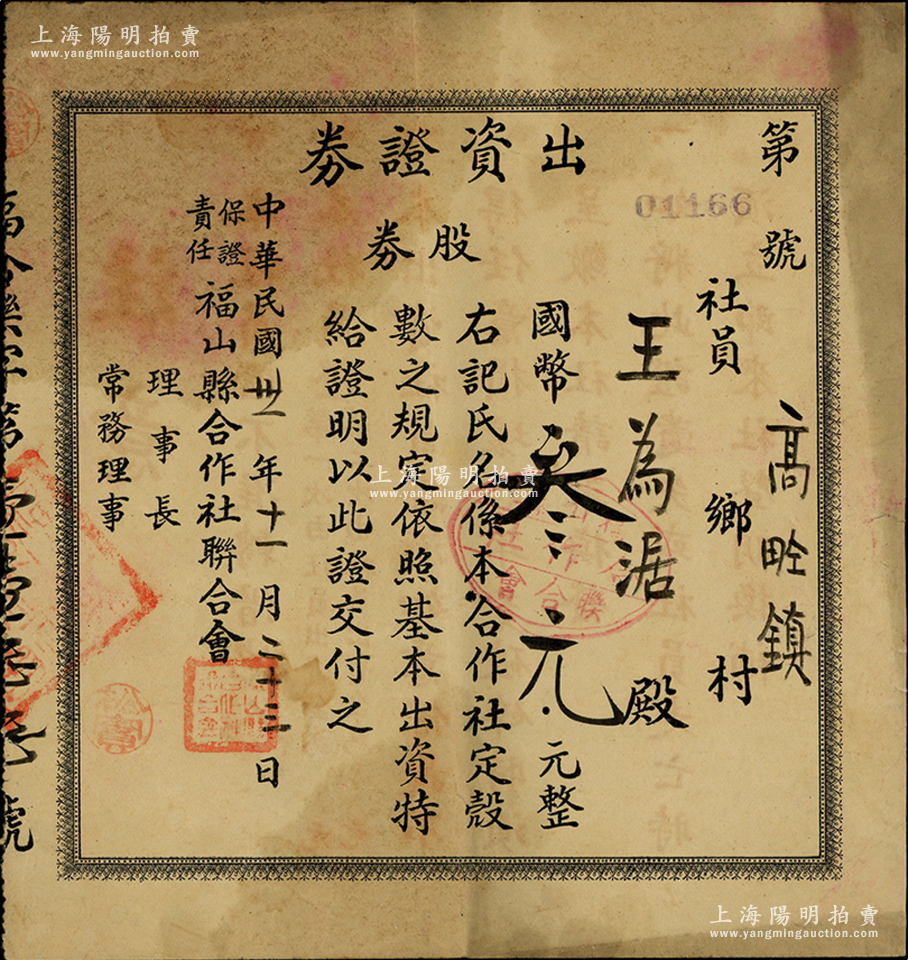 上海陽明拍賣
www.yangmingauction.com
出資證券
第
01166
號
高畛鎮
社員 鄉 村
王為涺 殿
國幣 元 元整
股券
右記氏名係本合作社定殼
數之規定依照基本出資特
給證明以此證交付之
中華民國卅年十一月二十三日
保證責任福山縣合作社聯合會
理事長
常務理事
上海陽明拍賣
www.yangmingauction.com
上海陽明拍賣
www.yangmingauction.com